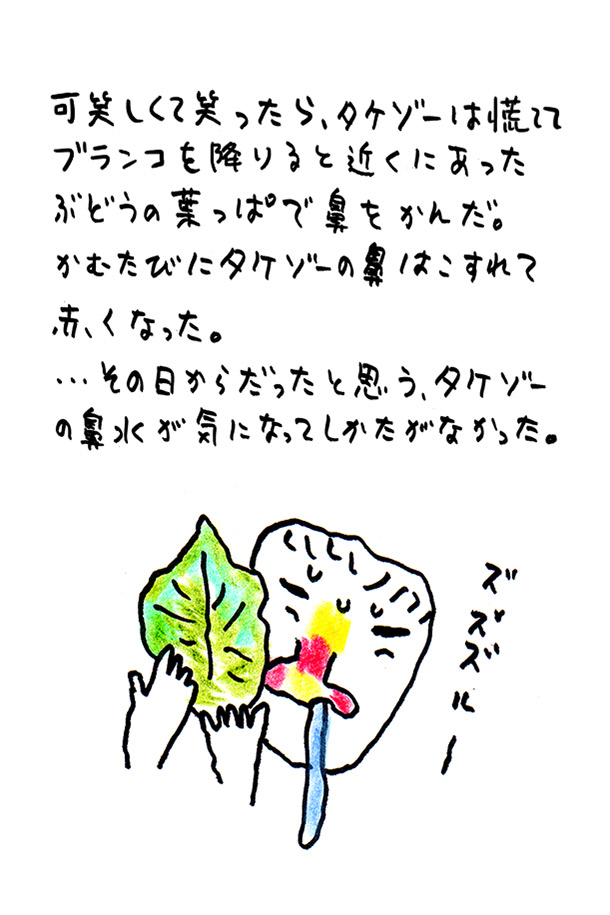 可笑しくて笑ったら、タケゾーは慌てて
ブランコを降りると近くにあった
ぶどうの葉っぱで鼻をかんだ。
かむたびにタケゾーの鼻はこすれて
赤くなった。
…その日からだったと思う、タケゾー
の鼻水が気になってしかたがなかった。
ズズズルー